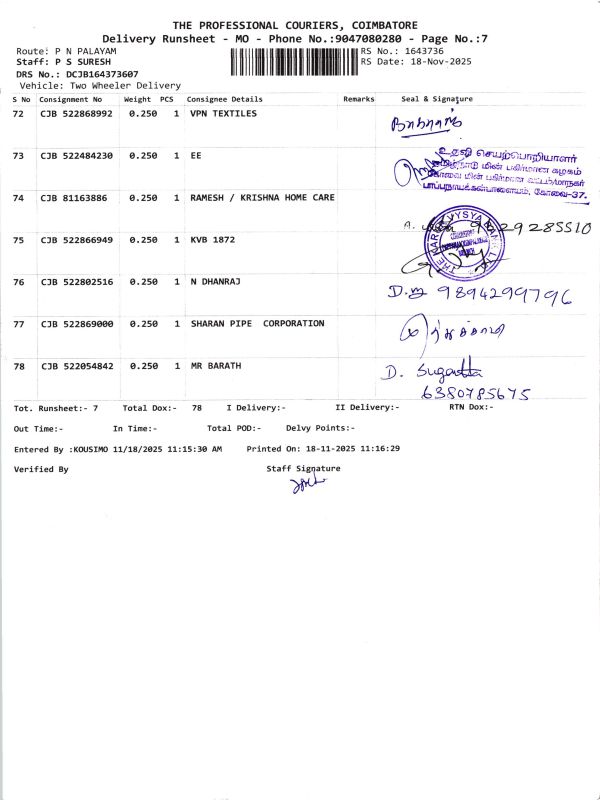 THE PROFESSIONAL COURIERS, COIMBATORE
Delivery Runsheet - MO - Phone No.:9047080280 - Page No.:7
Route: P N PALAYAM RS No.: 1643736
Staff: P S SURESH RS Date: 18-Nov-2025
DRS No.: DCJB164373607
Vehicle: Two Wheeler Delivery
S No Consignment No Weight PCS Consignee Details Remarks Seal & Signature
72 CJB 522868992 0.250 1 VPN TEXTILES
73 CJB 522484230 0.250 1 EE
உதவி செயற்பொறியாளர்
தமிழ்நாடு மின் பகிர்மான கழகம்
கோவை மின் பகிர்மான வட்டம்/மாநகர்
பாப்பநாயக்கன்பாளையம், கோவை-37.
74 CJB 81163886 0.250 1 RAMESH / KRISHNA HOME CARE
75 CJB 522866949 0.250 1 KVB 1872
THE KARUR VYSYA BANK LTD
76 CJB 522802516 0.250 1 N DHANRAJ 9894299796
77 CJB 522869000 0.250 1 SHARAN PIPE CORPORATION
78 CJB 522054842 0.250 1 MR BARATH D. Sugantha
6380785675
Tot. Runsheet:- 7 Total Dox:- 78 I Delivery:- II Delivery:- RTN Dox:-
Out Time:- In Time:- Total POD:- Delvy Points:-
Entered By :KOUSIMO 11/18/2025 11:15:30 AM Printed On: 18-11-2025 11:16:29
Verified By Staff Signature